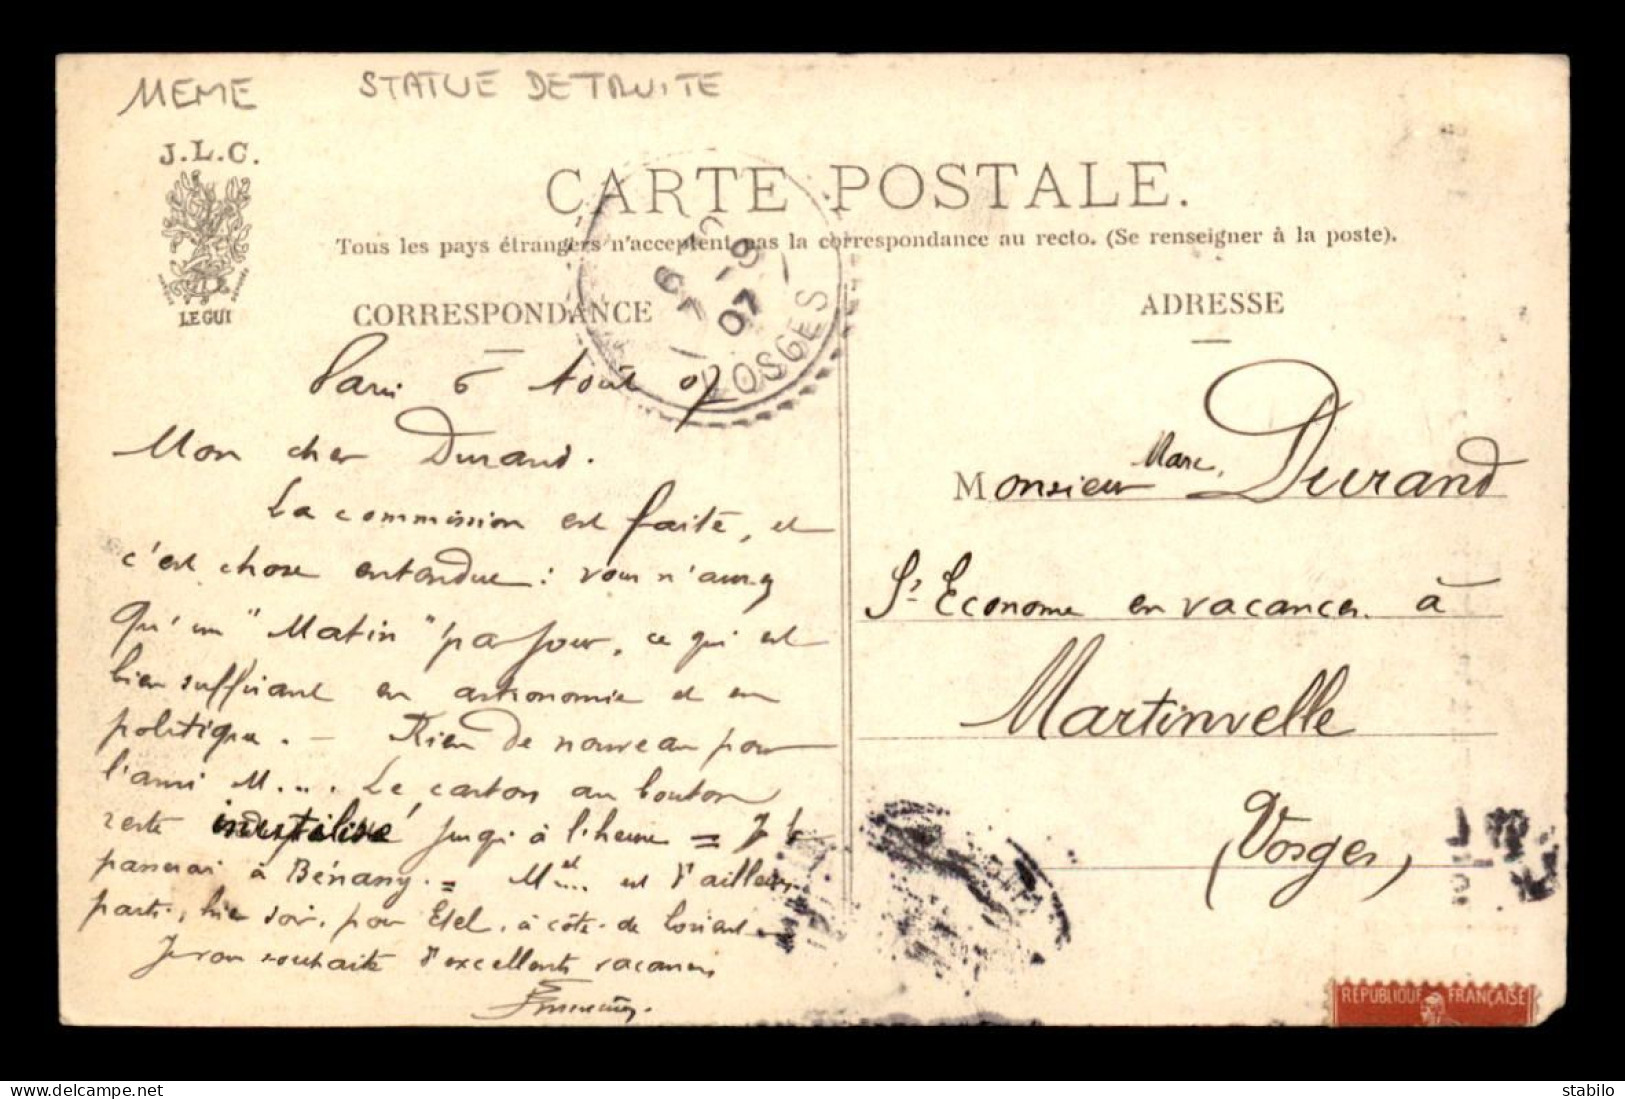 MEME STATUE DETRUITE
J.L.C.
CARTE POSTALE.
Tous les pays étrangers n'acceptent pas la correspondance au recto. (Se renseigner à la poste).
LE GUI
CORRESPONDANCE
ADRESSE
9 07
VOSGES
Paris 6 Août 07
Mon cher Durand.
La commission est faite, et
c'est chose entendue : vous n'aurez
qu'un "Matin" par jour, ce qui est
bien suffisant en astronomie et en
politique. — Rien de nouveau pour
l'ami M.... Le carton au bouton
reste jusqu'à l'heure = Je
passerai à Bénany. = M.... est d'ailleurs
parti, hier soir, pour Etel, à côté de Lorient.
Je vous souhaite d'excellentes vacances,
Monsieur Marc Durand
S/ Econome en vacances à
Martinvelle
(Vosges)
REPUBLIQUE FRANÇAISE
stabilo